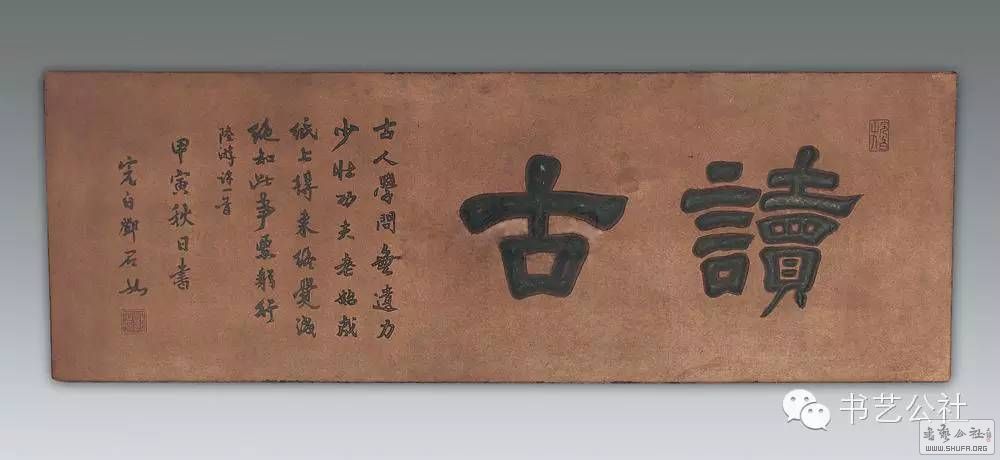 讀古
古人學問無遺力
少壯功夫老始成
紙上得来終覺淺
絶知此事要躬行
陸游詩一首
甲寅秋日書
完白鄧石如
书艺公社
WWW.SHUFA.ORG